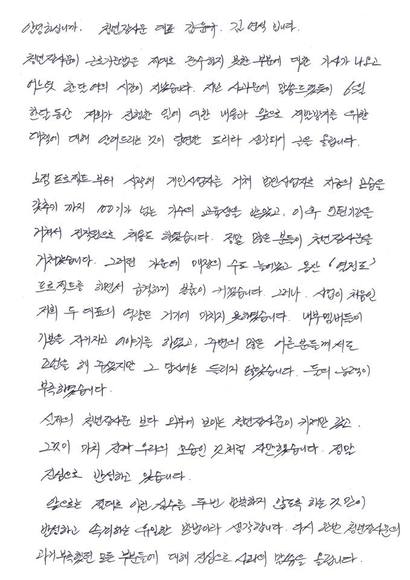 안녕하십니까. 청년장사꾼 대표 김윤규, 김연석 입니다.
청년장사꾼이 근로기준법을 제대로 준수하지 못한 부분에 대한 기사가 나오고
어느덧 한달 여의 시간이 지났습니다. 지난 사과문에 말씀드렸듯이 6월
한달 동안 저희가 진행한 일에 대한 내용과 앞으로 재발방지를 위한
대책에 대해 알려드리는 것이 당연한 도리라 생각되어 글을 올립니다.
노점 프로젝트 부터 시작해 개인사업자를 거쳐 법인사업자로 지금의 모습을
갖추기 까지 100기가 넘는 기수의 교육생을 받았고, 이후 인턴기간을
거쳐서 정직원으로 채용도 하였습니다. 정말 많은 분들이 청년장사꾼을
거쳐갔습니다. 그러던 가운데 매장의 수도 늘어났고 용산 "열정도"
프로젝트를 하면서 급격하게 볼륨이 커졌습니다. 그러나, 사업이 처음인
저희 두 대표의 역량은 거기에 미치지 못하였습니다. 내부 멤버들이
기본은 지키자고 이야기를 하였고, 주변의 많은 어른분들께서도
조언을 해 주셨지만 그 당시에는 들리지 않았습니다. 들어
부족하였습니다.
실제의 청년장사꾼 보다 외부에 보이는 청년장사꾼이 커져만 갔고,
그것이 마치 진짜 우리의 모습인 것처럼 자만하였습니다. 정말
진심으로 반성하고 있습니다.
앞으로는 절대로 이런 실수를 두번 반복하지 않도록 하는 것 만이
반성하고 속죄하는 유일한 방법이라 생각합니다. 다시 한번 청년장사꾼의
과거 부족했던 모든 부분들에 대해 진심으로 사과의 말씀을 올립니다.